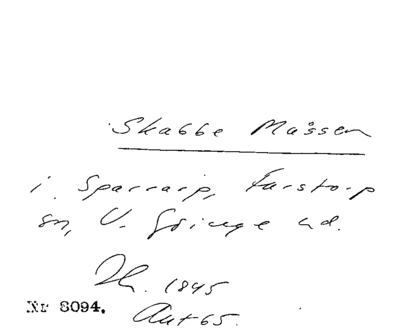 Skabbe Måssen
i. Sparrarp, Farstorp
sn, V. Göinge hd.
Th. 1845
Nr 8094. Aut 65.